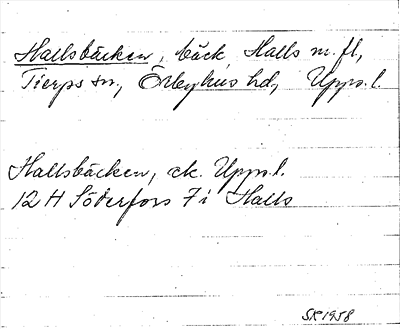 Hallsbäcken, bäck, Halls m. fl,
Tierps sn, Örbyhus hd, Upps. l.
Hallsbäcken, ek. Upps. l.
12 H Söderfors 7 i Halls
SR 1958